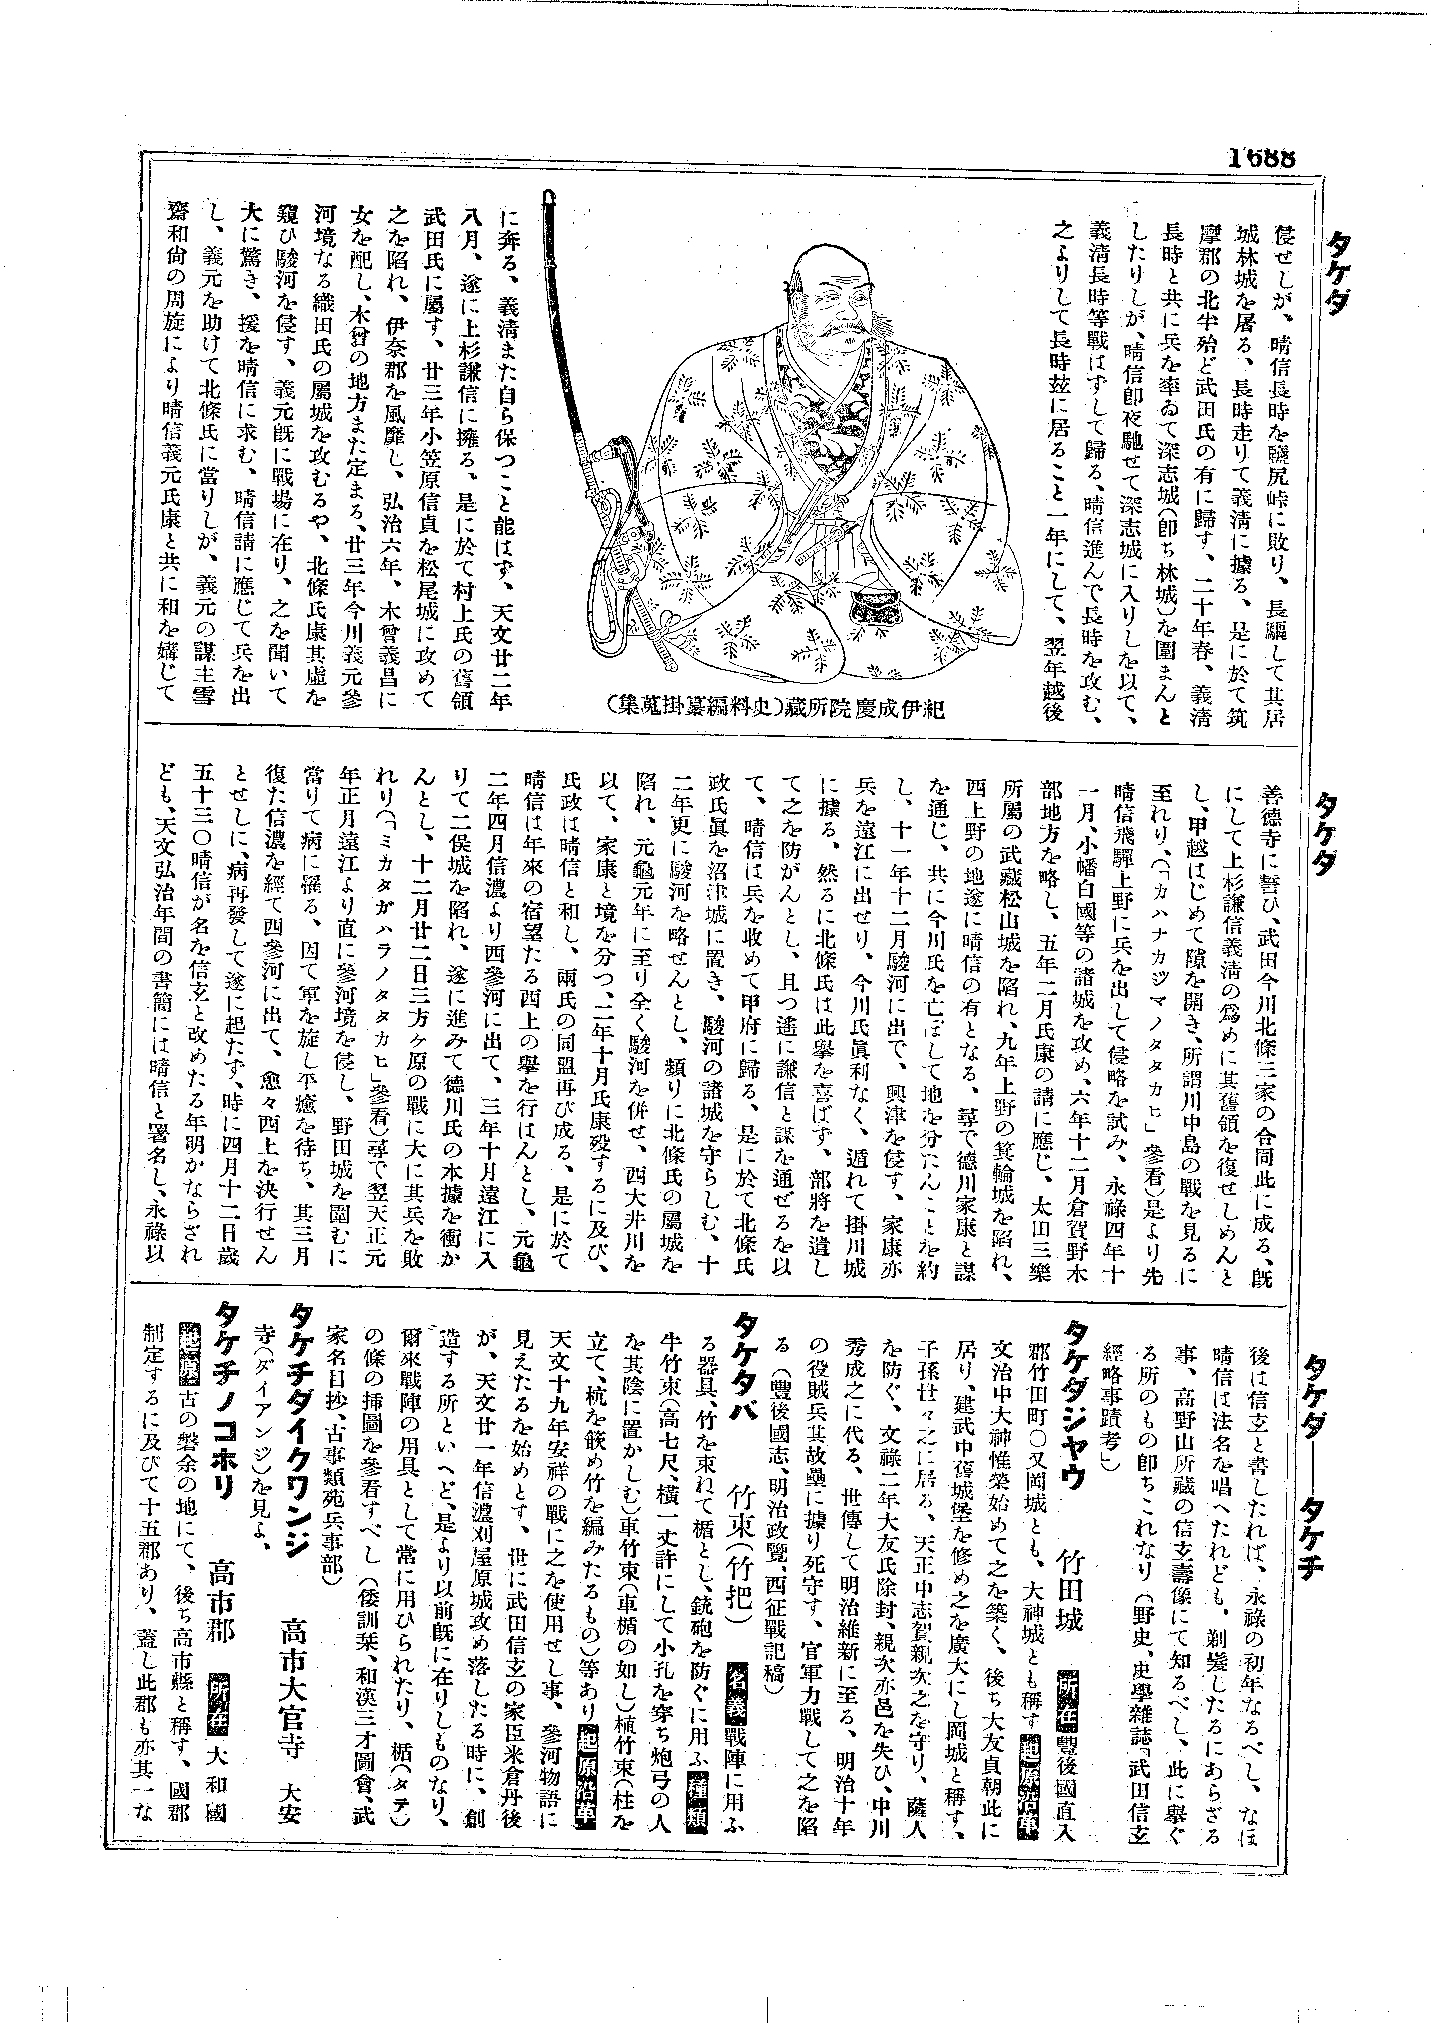 1688
タケダ
侵せしが、晴信長時を鹽尻峠に敗り、長驅して其居
城林城を屠る、長時走りて義淸に據る、是に於て筑
摩郡の北半殆ど武田氏の有に歸す、二十年春、義淸
長時と共に兵を率ゐて深志城(卽ち林城)を圍まんと
したりしが、晴信卽夜馳せて深志城に入りしを以て、
義淸長時等戰はずして歸る、晴信進んで長時を攻む、
之よりして長時玆に居ること一年にして、翌年越後
紀伊成慶院所藏(史料編纂掛蒐集)
に奔る、義淸また自ら保つこと能はず、天文廿二年
八月、遂に上杉謙信に擁る、是に於て村上氏の舊領
武田氏に屬す、廿三年小笠原信貞を松尾城に攻めて
之を陷れ、伊奈郡を風靡し、弘治六年、木曾義昌に
女を配し、木曾の地方また定まる、廿三年今川義元參
河境なる織田氏の屬城を攻むるや、北條氏康其虛を
窺ひ駿河を侵す、義元旣に戰場に在り、之を聞いて
大に驚き、援を晴信に求む、晴信請に應じて兵を出
し、義元を助けて北條氏に當りしが、義元の謀主雪
齋和尙の周旋により晴信義元氏康と共に和を媾じて
タケダ
善德寺に誓ひ、武田今川北條三家の合同此に成る、旣
にして上杉謙信義淸の爲めに其舊領を復せしめんと
し、甲越はじめて隙を開き、所謂川中島の戰を見るに
至れり、(「カハナカジマノタタカヒ」參看)是より先
晴信飛驒上野に兵を出して侵略を試み、永祿四年十
一月、小幡白國等の諸城を攻め、六年十二月倉賀野木
部地方を略し、五年二月氏康の請に應じ、太田三樂
所屬の武藏松山城を陷れ、九年上野の箕輪城を陷れ、
西上野の地遂に晴信の有となる、尋で德川家康と謀
を通じ、共に今川氏を亡ぼして地を分たんことを約
し、十一年十二月駿河に出で、興津を侵す、家康亦
兵を遠江に出せり、今川氏眞利なく、遁れて掛川城
に據る、然るに北條氏は此擧を喜ばず、部將を遣し
て之を防がんとし、且つ遙に謙信と謀を通ぜるを以
て、晴信は兵を收めて甲府に歸る、是に於て北條氏
政氏眞を沼津城に置き、駿河の諸城を守らしむ、十
二年更に駿河を略せんとし、頻りに北條氏の屬城を
陷れ、元龜元年に至り全く駿河を併せ、西大井川を
以て、家康と境を分つ、二年十月氏康歿するに及び、
氏政は晴信と和し、兩氏の同盟再び成る、是に於て
晴信は年來の宿望たる西上の擧を行はんとし、元龜
二年四月信濃より西參河に出て、三年十月遠江に入
りて二俣城を陷れ、遂に進みて德川氏の本據を衝か
んとし、十二月廿二日三方ヶ原の戰に大に其兵を敗
れり(「ミカタガハラノタタカヒ」參看)尋で翌天正元
年正月遠江より直に參河境を侵し、野田城を圍むに
當りて病に罹る、因て軍を旋し平癒を待ち、其三月
復た信濃を經て西參河に出て、愈々西上を決行せん
とせしに、病再發して遂に起たず、時に四月十二日歲
五十三〇晴信が名を信玄と改めたる年明かならざれ
ども、天文弘治年間の書簡には晴信と署名し、永祿以
タケダ——タケチ
後は信玄と書したれば、永祿の初年なるべし、なほ
晴信は法名を唱へたれども、剃髮したるにあらざる
事、高野山所藏の信玄壽像にて知るべし、此に擧ぐ
る所のもの卽ちこれなり(野史、史學雜誌「武田信玄
經略事蹟考」)
タケダジヤウ 竹田城 所在 豐後國直入
郡竹田町〇又岡城とも、大神城とも稱す 起原沿革
文治中大神惟榮始めて之を築く、後ち大友貞朝此に
居り、建武中舊城堡を修め之を廣大にし岡城と稱す、
子孫世々之に居る、天正中志賀親次之を守り、薩人
を防ぐ、文祿二年大友氏除封、親次亦邑を失ひ、中川
秀成之に代る、世傳して明治維新に至る、明治十年
の役賊兵其故壘に據り死守す、官軍力戰して之を陷
る(豐後國志、明治政覽、西征戰記稿)
タケタバ 竹束(竹把) 名義 戰陣に用ふ
る器具、竹を束ねて楯とし、銃砲を防ぐに用ふ 種類
牛竹束(高七尺、橫一丈許にして小孔を穿ち炮弓の人
を其陰に置かしむ)車竹束(車楯の如し)植竹束(柱を
立て、杭を嵌め竹を編みたるもの)等あり 起原沿革
天文十九年安祥の戰に之を使用せし事、參河物語に
見えたるを始めとす、世に武田信玄の家臣米倉丹後
が、天文廿一年信濃刈屋原城攻め落したる時に、創
造する所といへど、是より以前旣に在りしものなり、
爾來戰陣の用具として常に用ひられたり、楯(タテ)
の條の揷圖を參看すべし(倭訓栞、和漢三才圖會、武
家名目抄、古事類苑兵事部)
タケチダイクワンジ 高市大官寺 大安
寺(ダイアンジ)を見よ、
タケチノコホリ 高市郡 所在 大和國
起原 古の磐余の地にて、後ち高市縣と稱す、國郡
制定するに及びて十五郡あり、蓋し此郡も亦其一な